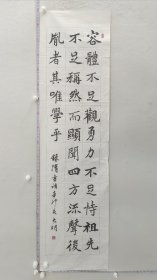 容體不足觀勇力不足恃祖先
不足稱然而顯聞四方流聲後
胤者其唯學乎